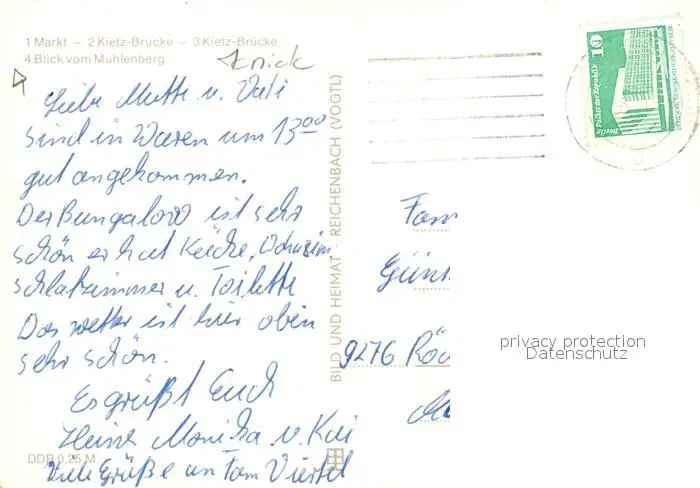 1 Markt – 2 Kietz-Brücke – 3 Kietz-Brücke
4 Blick vom Mühlenberg
Knick
Liebe Mutti u. Vati
sind in Waren um 13 00
gut angekommen.
Der Bungalow ist sehr
schön er hat Küche, Wohnzim
schlafzimmer u. Toilette
Das wetter ist hier oben
sehr schön.
Es grüßt Euch
Heinz Monika u. Kai
Viele Grüße an Fam Viertel
DDR 0,25 M
BILD UND HEIMAT REICHENBACH (VOGTL)
10
Palast der Republik
Berlin
DEUTSCHE DEMOKRATISCHE REPUBLIK
Fam
Günt
9276 Röd
privacy protection
Datenschutz